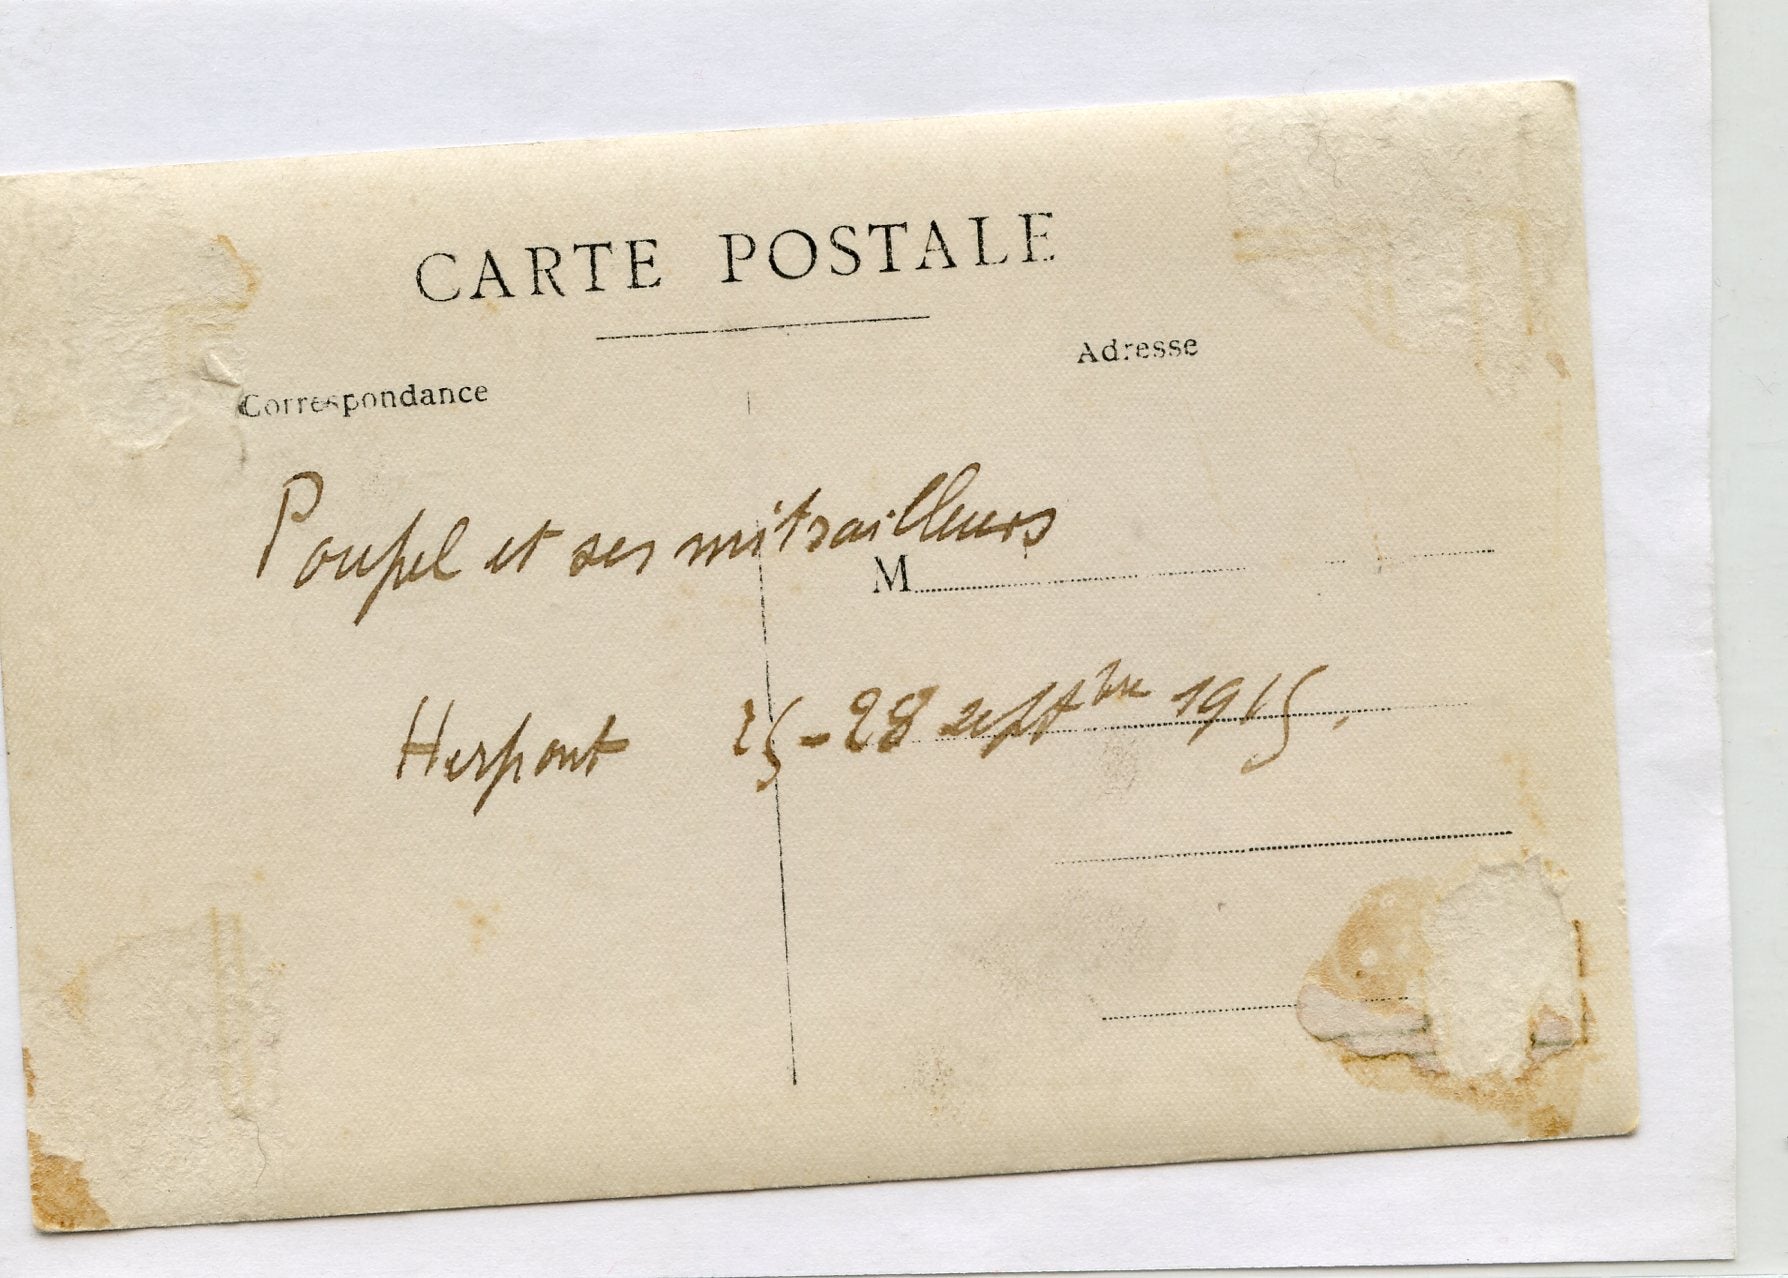 CARTE POSTALE
Correspondance
Adresse
Poupel et ses mitrailleurs
M
Herpont 25-28 septbre 1915.